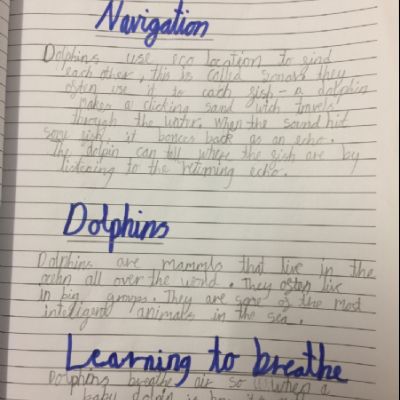 Navigation
Dolphins use eco location to find
each other, this is called sonar they
often use it to cach fish - a dolphin
makes a clicking sand witch travels
through the water. When the sound hit
some fish, it bonces back as an echo.
The dolpin can tell where the fish are by
listening to the returning echo.
Dolphins
Dolphins are mammls that live in the
all over the world. They often live
in big groups. They are some of the most
inteligent animals in the sea.
Learning to breathe
Dolphins breathe air so when a
baby dolpin is